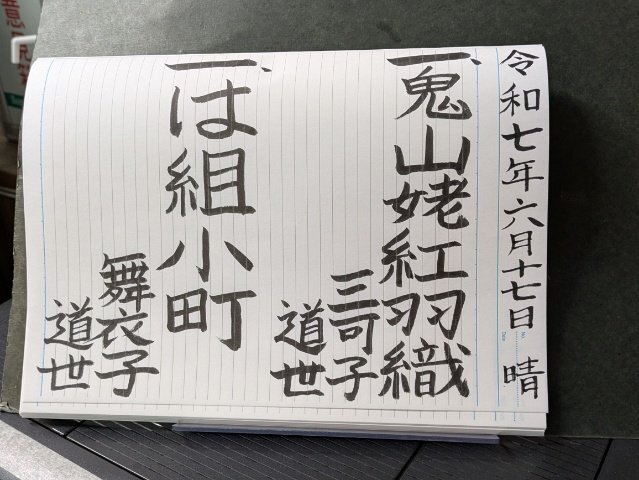 令和七年六月十七日 晴
一、鬼山姥紅羽織
三可子
道世
一、は組小町
舞衣子
道世